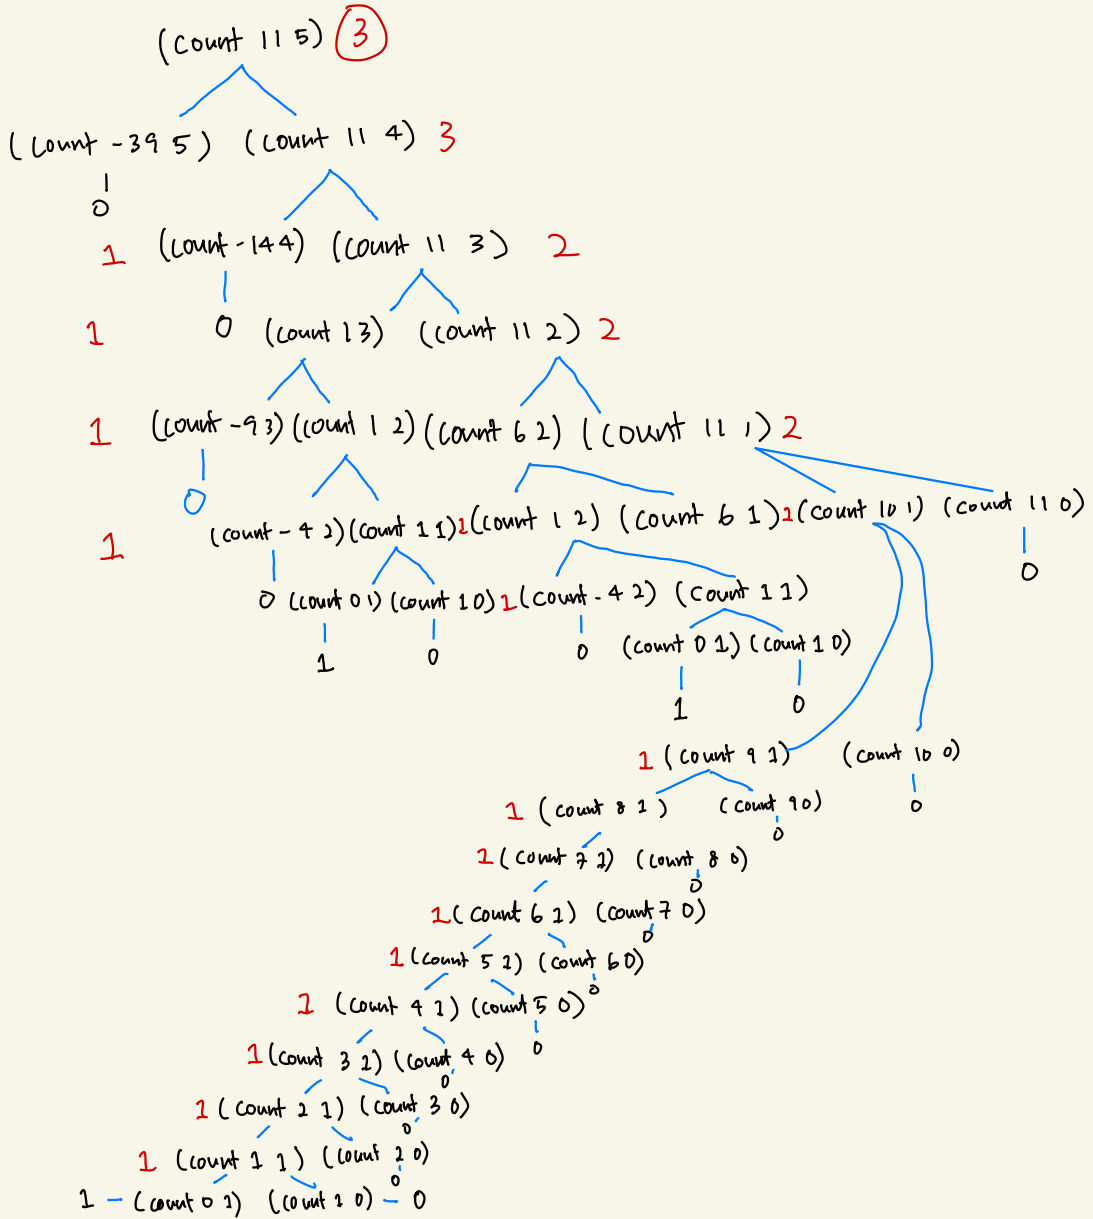 (count 11 5) 3
(count -39 5) (count 11 4) 3
0
1 (count -14 4) (count 11 3) 2
1 0 (count 1 3) (count 11 2) 2
1 (count -9 3) (count 1 2) (count 6 2) (count 11 1) 2
0
1 (count -4 2) (count 1 1) 1 (count 1 2) (count 6 1) 1 (count 10 1) (count 11 0)
0
0 (count 0 1) (count 1 0) 1 (count -4 2) (count 1 1)
1 0 0 (count 0 1) (count 1 0)
1 0
1 (count 9 1) (count 10 0)
0
1 (count 8 1) (count 9 0)
0
1 (count 7 1) (count 8 0)
0
1 (count 6 1) (count 7 0)
0
1 (count 5 1) (count 6 0)
0
1 (count 4 1) (count 5 0)
0
1 (count 3 1) (count 4 0)
0
1 (count 2 1) (count 3 0)
0
1 (count 1 1) (count 2 0)
0
1 (count 0 1) (count 1 0) 0